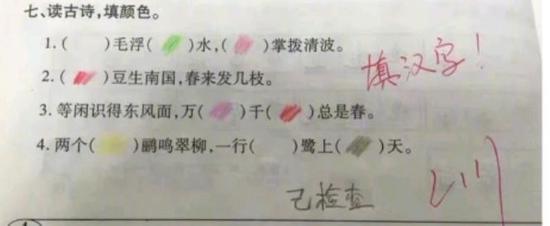 七、读古诗,填颜色。
1.( )毛浮( )水,( )掌拨清波。
2.( )豆生南国,春来发几枝。
填汉字!
3.等闲识得东风面,万( )千( )总是春。
4.两个( )鹂鸣翠柳,一行( )鹭上( )天。
已检查